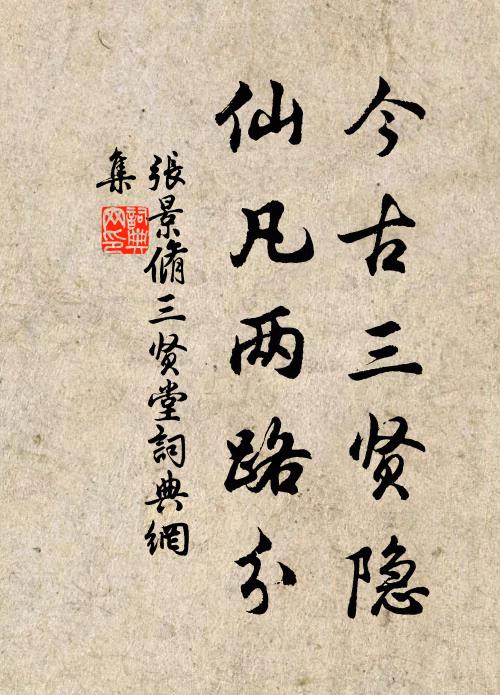 今古三贤隐
仙凡两路分
張景脩三贤堂詞典網
集
詞典网印